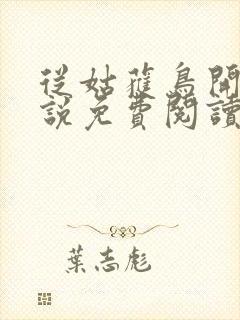 從姑蘿鳥開
說免費閱讀
葉志彪